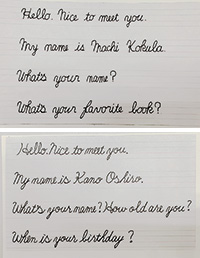 Hello. Nice to meet you.
My name is Machi Kokula.
What's your name?
What's your favorite book?
Hello. Nice to meet you.
My name is Kano Oshiro.
What's your name? How old are you?
When is your birthday?